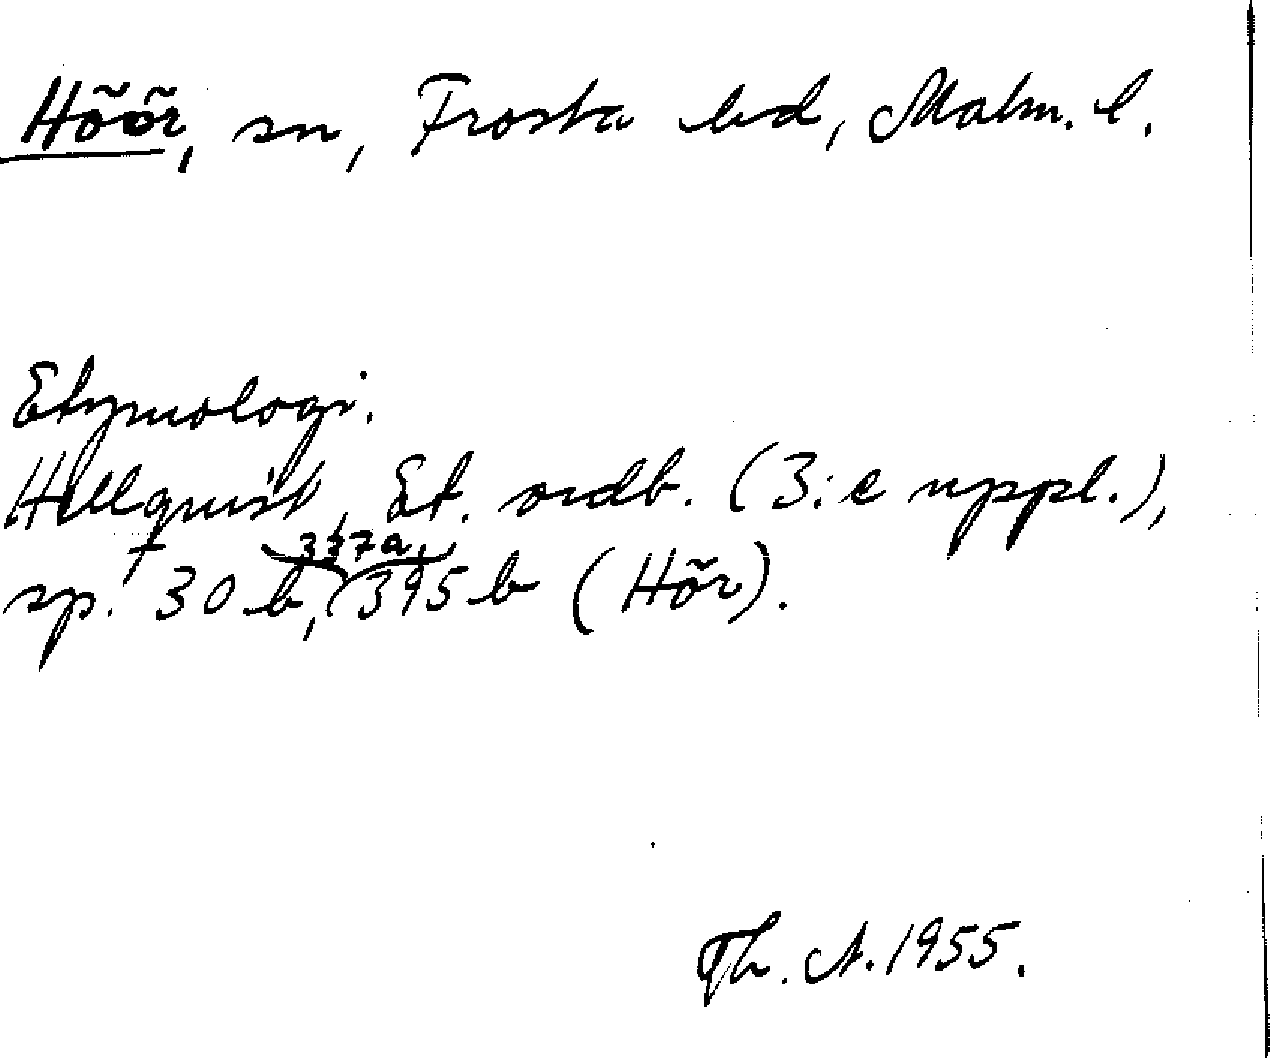 Höör, sn, Frosta hd, Malm. l.
Etymologi.
Hellquist, Et. ordb. (3:e uppl.),
377a,
sp. 30 b, 395 b (Hör).
Th. A. 1955.